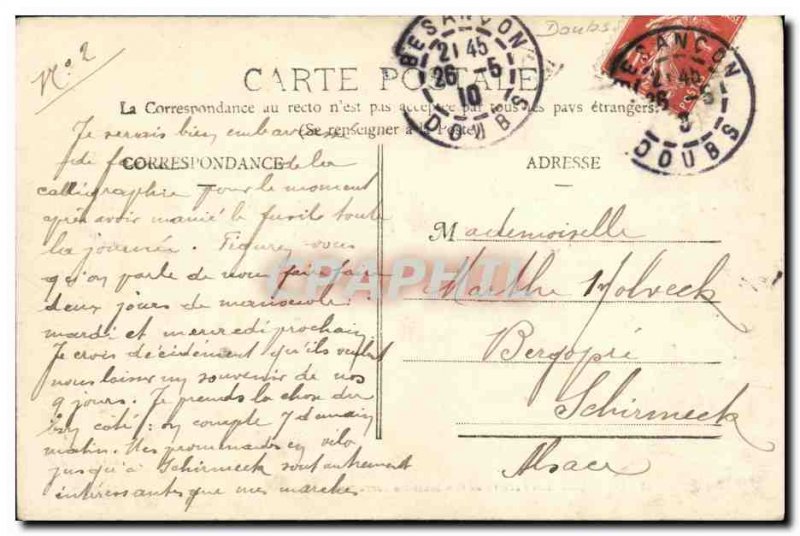 No. 2
Doubs
BESANÇON
21 45
26 - 5
10
DOUBS
BESANÇON
21 45
26 - 5
DOUBS
CARTE POSTALE
La Correspondance au recto n'est pas acceptée par tous les pays étrangers.
(Se renseigner à la Poste)
CORRESPONDANCE
Je serais bien embarrassé
de faire de la
calligraphie pour le moment
après avoir manié le fusil toute
la journée. Figurez vous
qu'on parle de nous faire faire
deux jours de manoeuvre
mardi et mercredi prochain
Je crois décidément qu'ils veulent
nous laisser un souvenir de nos
9 jours. Je prends la chose du
bon côté: on compte 7 demain
matin. Mes promenades en vélo
jusqu'à Schirmeck sont autrement
intéressantes que mes marches.
ADRESSE
Mademoiselle
Marthe Holveck
Bergopré
Schirmeck
Alsace
CPAPHIL